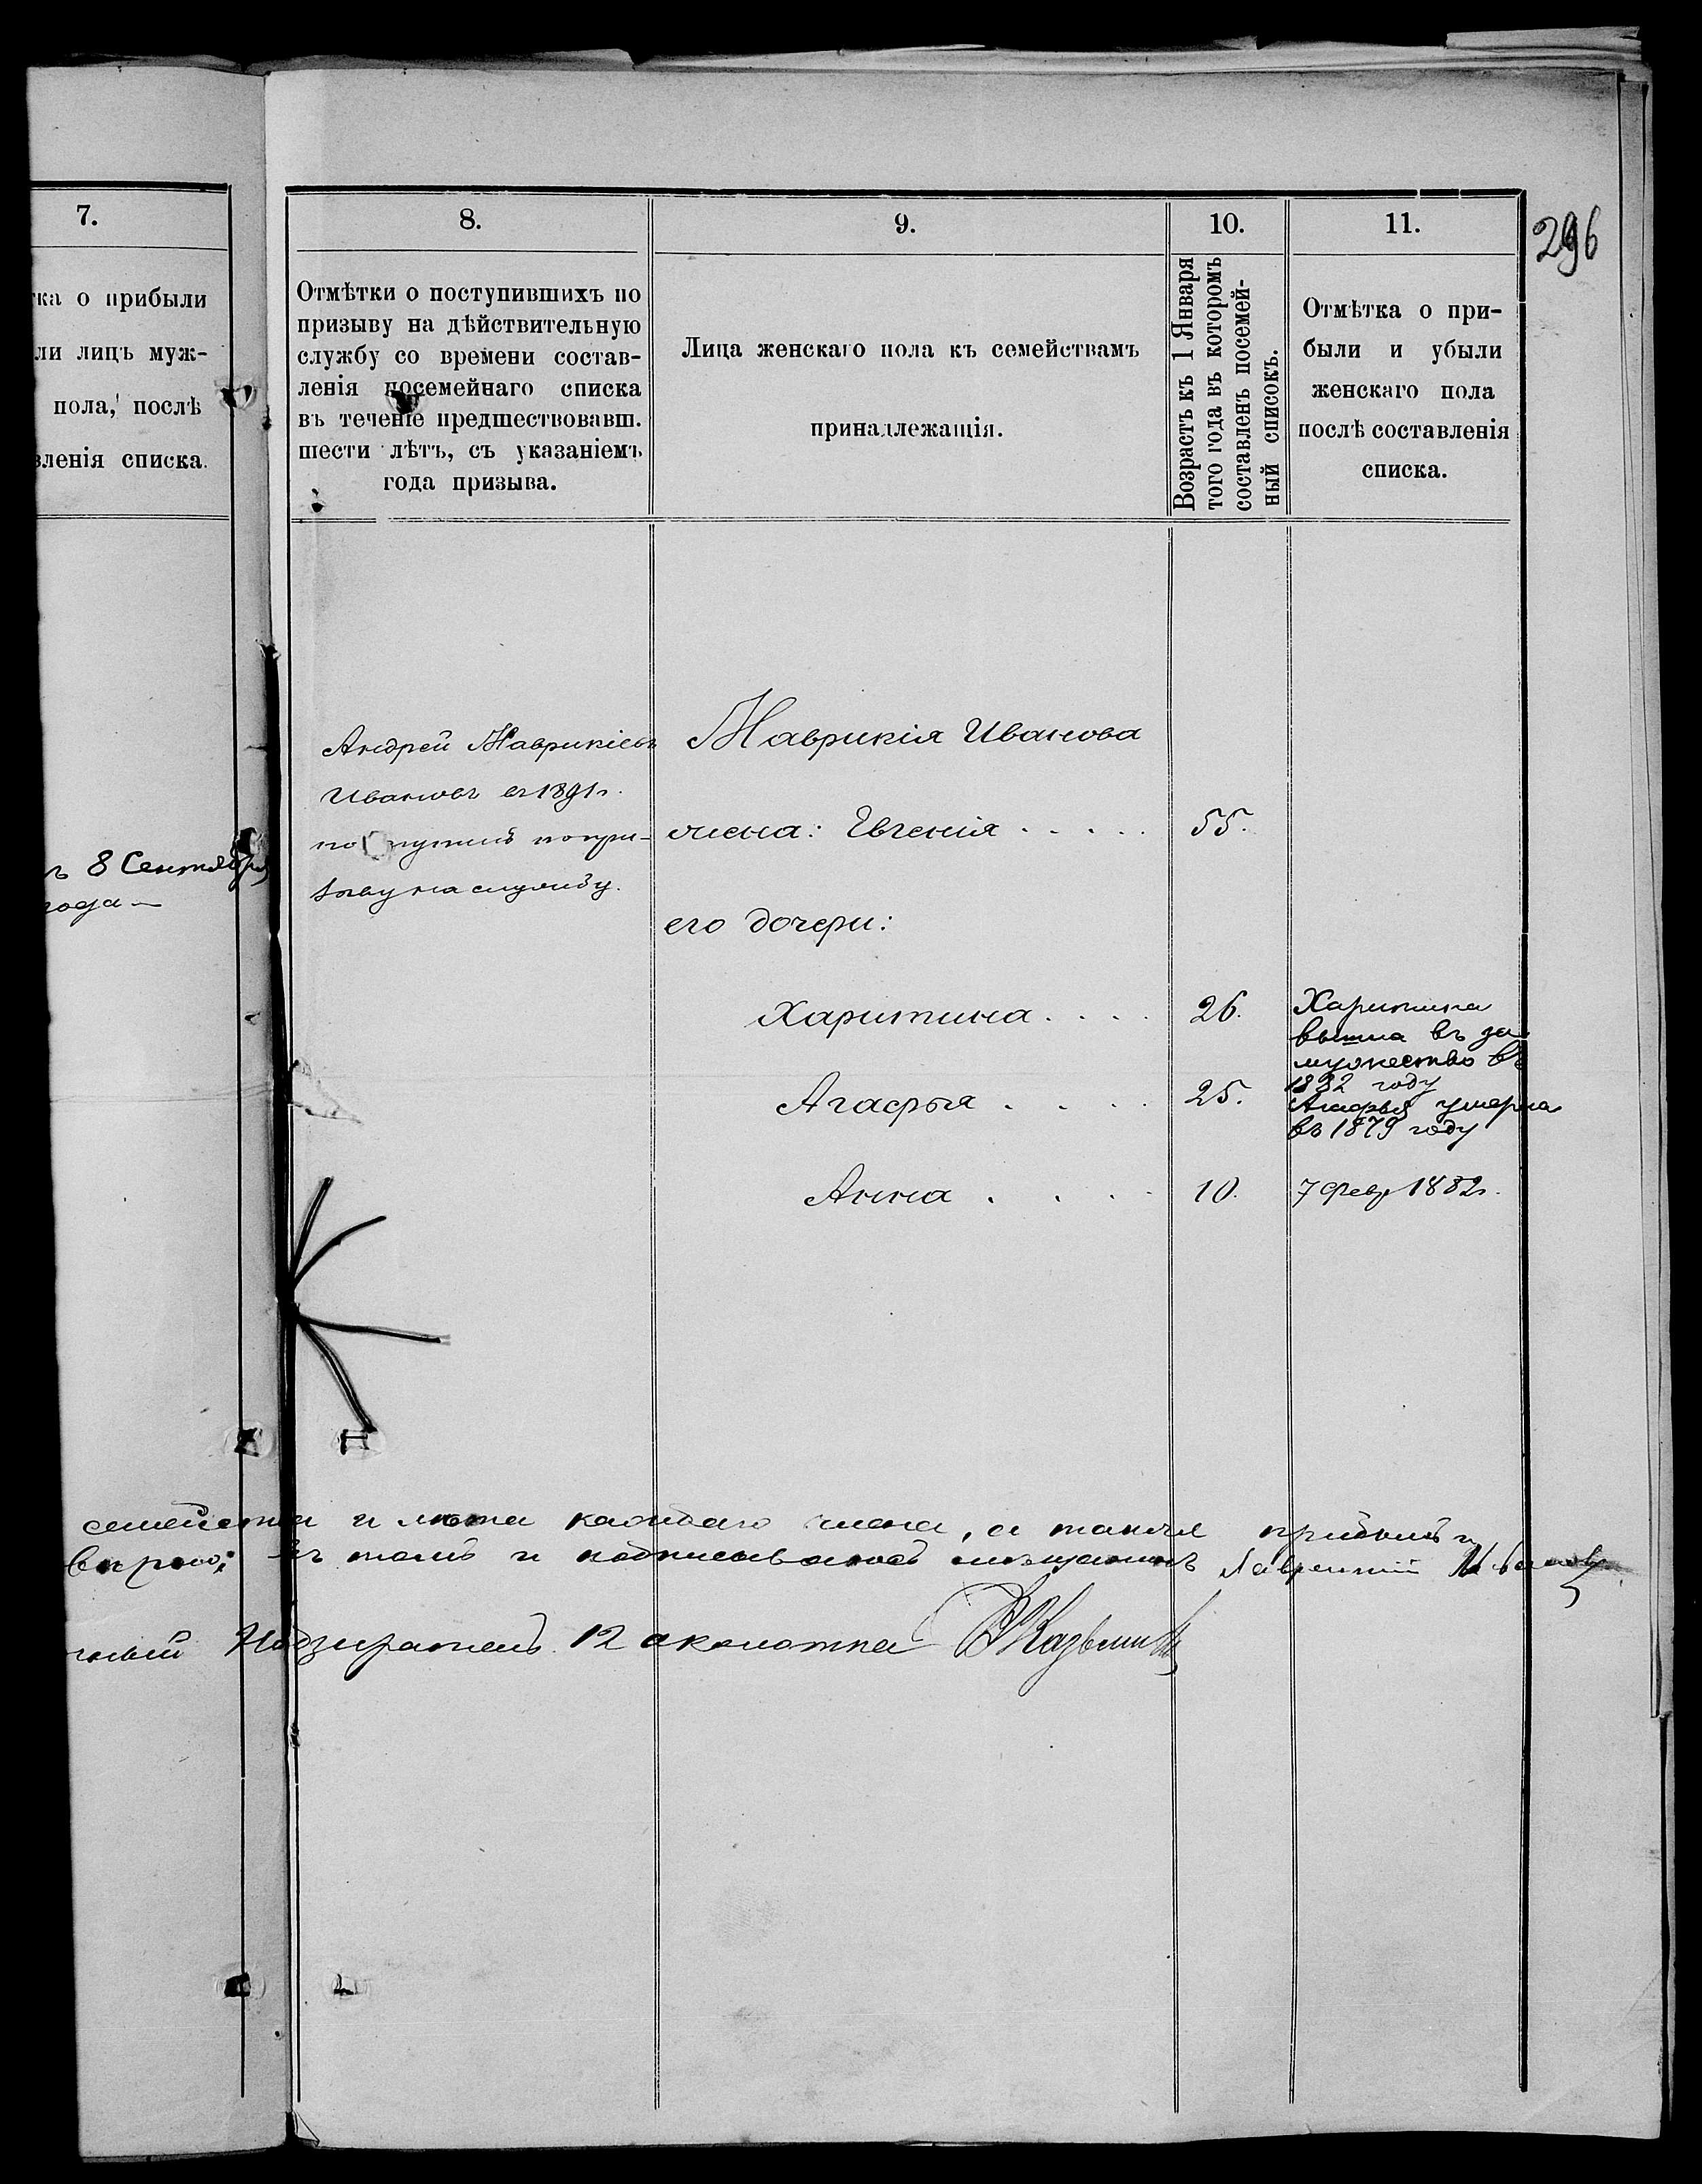 296
7.
тка о прибыли
ли лицъ муж-
пола, послѣ
вленія списка.
8.
Отмѣтки о поступившихъ по
призыву на дѣйствительную
службу со времени состав-
ленія посемейнаго списка
въ теченіе предшествовавш.
шести лѣтъ, съ указаніемъ
года призыва.
9.
Лица женскаго пола къ семействамъ
принадлежащія.
10.
Возрастъ къ 1 Января
того года въ которомъ
составленъ посемей-
ный списокъ.
11.
Отмѣтка о при-
были и убыли
женскаго пола
послѣ составленія
списка.
ъ 8 Сентября
года —
Андрей Маврикіевъ
Ивановъ въ 1891 г.
поступилъ по при-
зыву на службу.
Маврикія Иванова
жена: Евгенія . . . . . 55.
его дочери:
Харитина . . . . 26.
Агафья . . . . 25.
Анна . . . . 10.
Харитина
вышла въ за-
мужество въ
1882 году
Агафья умерла
въ 1879 году
7 февр 1882 г.
семейства и лѣта каждаго члена, а также прибыль и
вѣрно; въ томъ и подписываюсь мѣщанинъ Лаврентій Ивановъ
ный Надзиратель 12 околотка